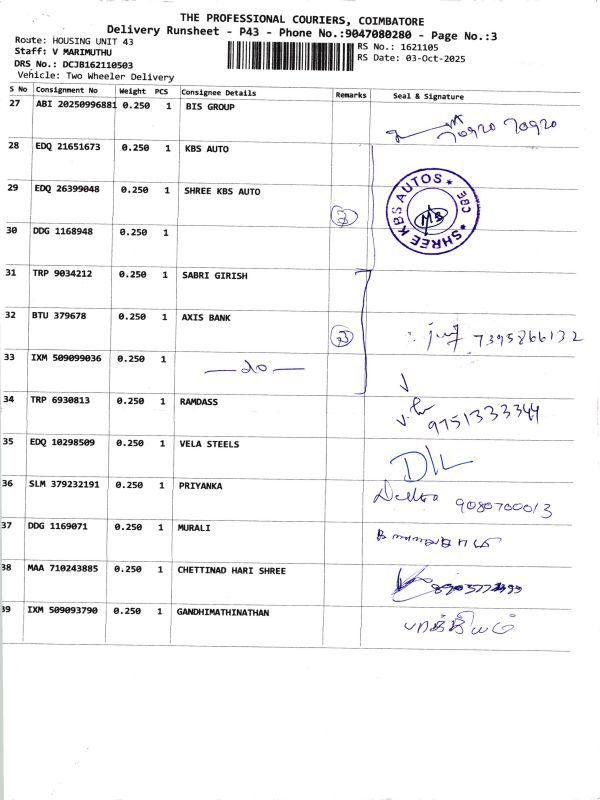 THE PROFESSIONAL COURIERS, COIMBATORE
Delivery Runsheet - P43 - Phone No.:9047080280 - Page No.:3
Route: HOUSING UNIT 43
Staff: V MARIMUTHU
RS No.: 1621105
DRS No.: DCJB162110503
RS Date: 03-Oct-2025
Vehicle: Two Wheeler Delivery
S No Consignment No Weight PCS Consignee Details Remarks Seal & Signature
27 ABI 20250996881 0.250 1 BIS GROUP
70920 70920
28 EDQ 21651673 0.250 1 KBS AUTO
29 EDQ 26399048 0.250 1 SHREE KBS AUTO
3
SHREE KBS AUTOS CBE
30 DDG 1168948 0.250 1
31 TRP 9034212 0.250 1 SABRI GIRISH
32 BTU 379678 0.250 1 AXIS BANK
7395866132
33 IXM 509099036 0.250 1
— do —
34 TRP 6930813 0.250 1 RAMDASS
9751333344
35 EDQ 10298509 0.250 1 VELA STEELS
D/L
36 SLM 379232191 0.250 1 PRIYANKA
9080700013
37 DDG 1169071 0.250 1 MURALI
38 MAA 710243885 0.250 1 CHETTINAD HARI SHREE
39 IXM 509093790 0.250 1 GANDHIMATHINATHAN
பாக்கியம்